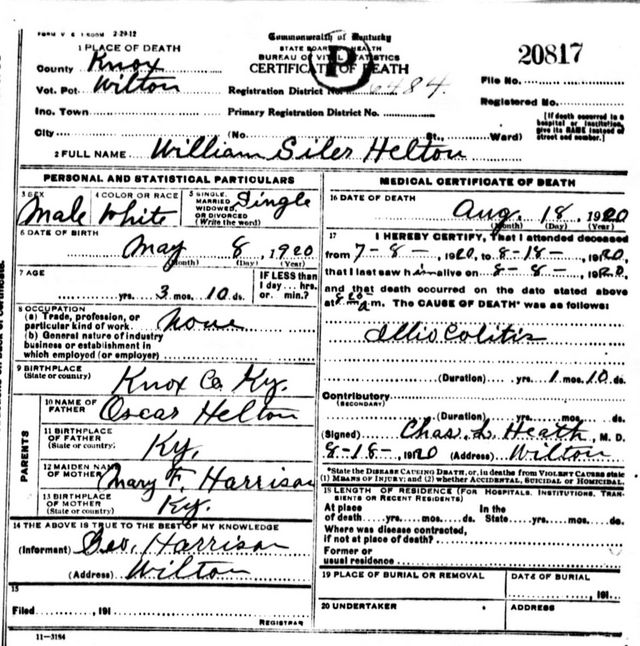 FORM V. S. 1 500M 2-29-12
Commonwealth of Kentucky
STATE BOARD OF HEALTH
BUREAU OF VITAL STATISTICS
CERTIFICATE OF DEATH
P
20817
1 PLACE OF DEATH
County Knox
Vot. Pct Wilton
Registration District No. 6484.
File No.
Inc. Town
Primary Registration District No.
Registered No.
City (No St., Ward)
[If death occurred in a
hospital or institution,
give its NAME instead of
street and number.]
2 FULL NAME William Siler Helton
PERSONAL AND STATISTICAL PARTICULARS
3 SEX
Male
4 COLOR OR RACE
White
5 SINGLE,
MARRIED
WIDOWED,
OR DIVORCED
(Write the word)
Single
6 DATE OF BIRTH
May 8, 1920
(Month) (Day) (Year)
7 AGE
yrs. 3 mos. 10 ds.
IF LESS than
1 day... hrs.
or min.?
8 OCCUPATION
(a) Trade, profession, or
particular kind of work. None
(b) General nature of industry
business or establishment in
which employed (or employer)
9 BIRTHPLACE
(State or country)
Knox Co, Ky.
PARENTS
10 NAME OF
FATHER
Oscar Helton
11 BIRTHPLACE
OF FATHER
(State or country)
Ky,
12 MAIDEN NAME
OF MOTHER
Mary F. Harrison
13 BIRTHPLACE
OF MOTHER
(State or country)
Ky.
14 THE ABOVE IS TRUE TO THE BEST OF MY KNOWLEDGE
(Informant) Geo. Harrison
(Address) Wilton
15
Filed , 191
REGISTRAR
11-3184
MEDICAL CERTIFICATE OF DEATH
16 DATE OF DEATH
Aug. 18, 1920
(Month) (Day) (Year)
17 I HEREBY CERTIFY, That I attended deceased
from 7-8-, 1920, to 8-18-, 1920,
that I last saw him alive on 8-8-, 1920,
and that death occurred on the date stated above
at m. The CAUSE OF DEATH* was as follows:
Illio Colitis
(Duration) yrs. 1 mos. 10 ds.
Contributory
(SECONDARY)
(Duration) yrs. mos. ds.
(Signed) Chas. L. Heath, M. D.
8-18-, 1920 (Address) Wilton
*State the DISEASE CAUSING DEATH, or, in deaths from VIOLENT CAUSES state
(1) MEANS OF INJURY; and (2) whether ACCIDENTAL, SUICIDAL or HOMICIDAL.
18 LENGTH OF RESIDENCE (FOR HOSPITALS, INSTITUTIONS, TRANSIENTS OR RECENT RESIDENTS)
At place
of death yrs. mos. ds.
In the
State yrs. mos. ds.
Where was disease contracted,
if not at place of death?
Former or
usual residence
19 PLACE OF BURIAL OR REMOVAL
DATE OF BURIAL
, 191
20 UNDERTAKER
ADDRESS